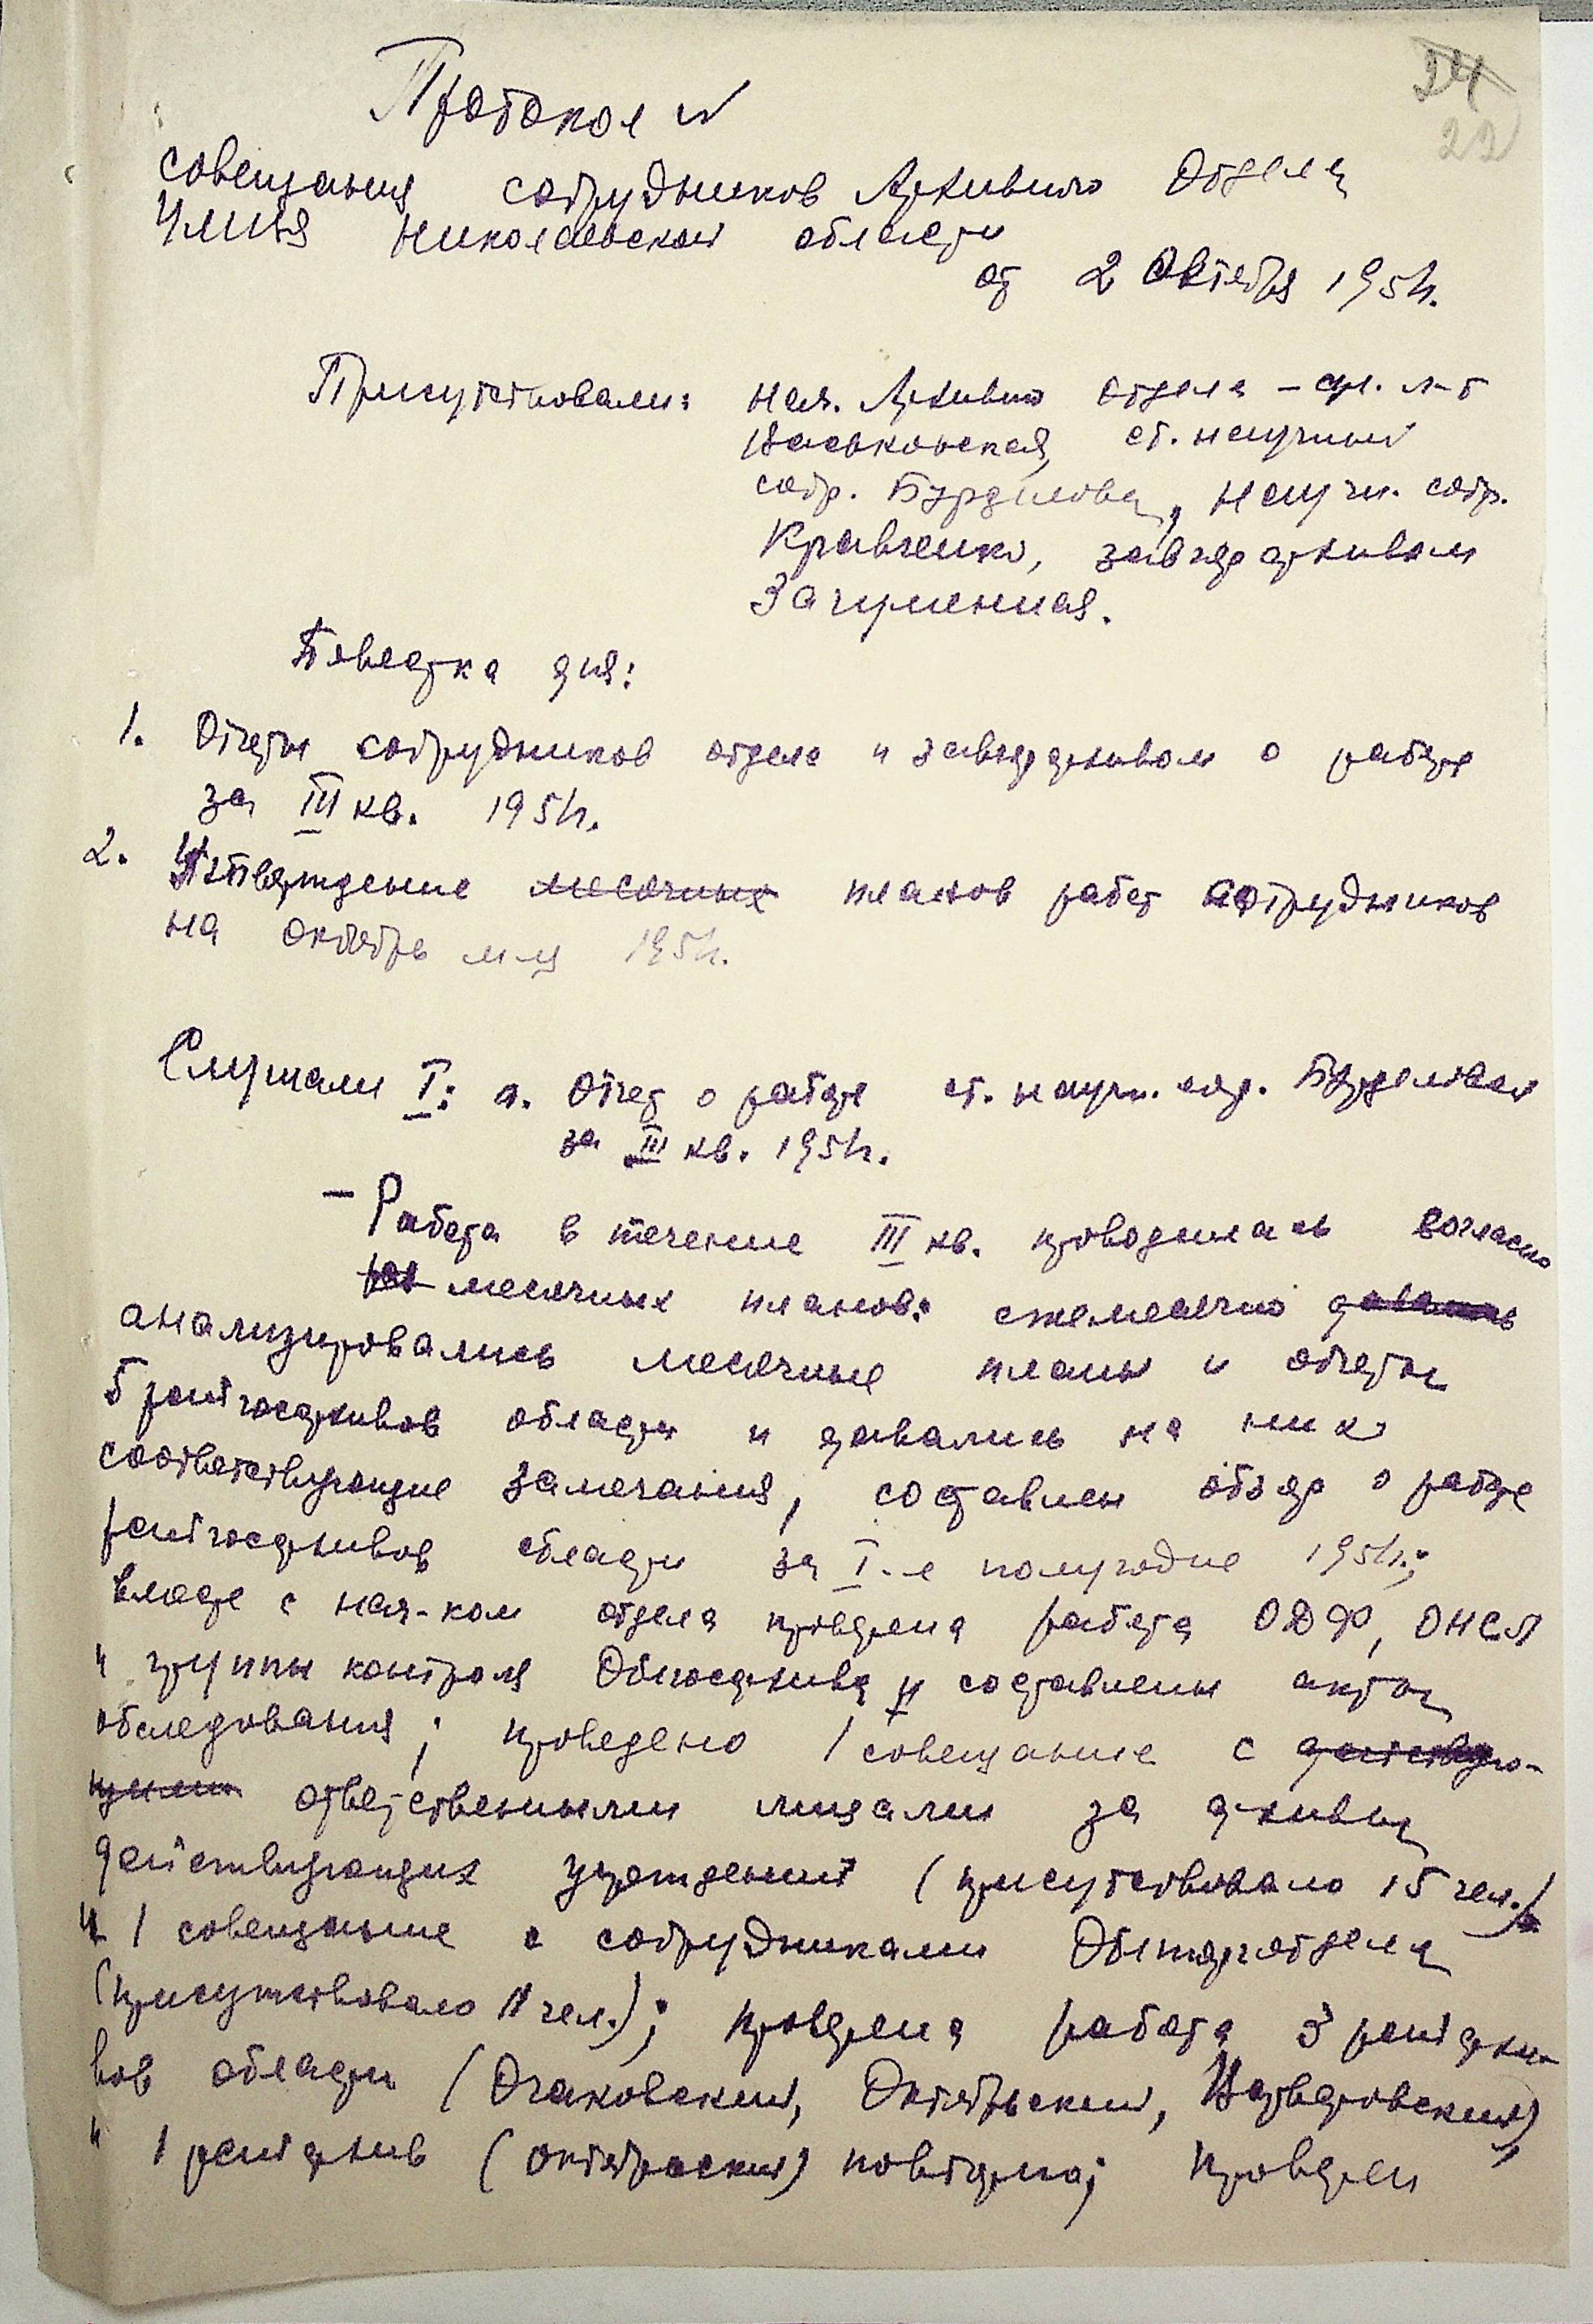 24
22
Протокол №
совещания сотрудников Архивного Отдела
УМГБ Николаевской области
от 2 Октября 1951г.
Присутствовали: Нач. Архивного отдела – ст. л-т
Васьковская, ст. научный
сотр. Бурдилова, научн. сотр.
Кравченко, завгорархивом
Загуменная.
Повестка дня:
1. Отчеты сотрудников отдела и завгорархивом о работе
за III кв. 1951г.
2. Утверждение месячных планов работ сотрудников
на октябрь м-ц 1951г.
Слушали I: а. Отчет о работе ст. научн. сотр. Бурдиловой
за III кв. 1951г.
– Работа в течение III кв. проводилась согласно
месячных планов: ежемесячно давались
анализировались месячные планы и отчеты
райгосархивов области и давались на них
соответствующие замечания, составлен обзор о работе
райгосархивов области за I-е полугодие 1951г.;
вместе с нач-ком отдела проверена работа ОДФ, ОНСЛ
и группы контроля Облгосархива и составлены акты
обследования; проведено 1 совещание с действую-
щими ответственными лицами за архивы
действующих учреждений (присутствовало 15 чел.)
и 1 совещание с сотрудниками Облторготдела
(присутствовало 11 чел.); проверена работа 3 райархи-
вов области (Очаковский, Октябрьский, Варваровский),
и 1 райархив (Октябрьский) повторно; проверен